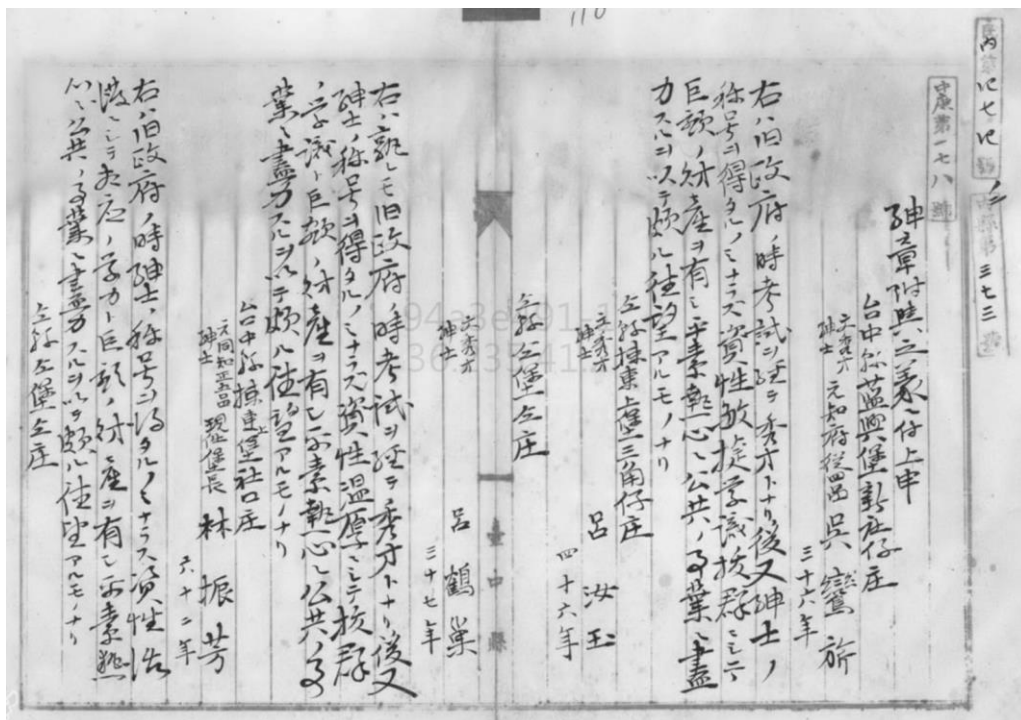 内
七
号
三七三
中庶第一七八號
紳章附與之義ニ付上申
台中縣藍興堡新社仔庄
元秀才 紳士 元知府從四品 呉鸞旂
三十六年
右ハ旧政府ノ時考試ヲ経テ秀才トナリ後又紳士ノ
称号ヲ得タルノミナラス資性敏捷学識抜群ニシテ
巨額ノ財産ヲ有シ平素熱心ニ公共ノ事業ニ盡
力スルヲ以テ頗ル徳望アルモノナリ
仝縣揀東上堡三角仔庄
元秀才 紳士 呂汝玉
四十六年
仝縣仝堡仝庄
元秀才 紳士 呂鶴巣
三十七年
右ハ孰レモ旧政府ノ時考試ヲ経テ秀才トナリ後又
紳士ノ称号ヲ得タルノミナラス資性温厚ニシテ抜群
ノ学識ト巨額ノ財産ヲ有シ平素熱心ニ公共ノ事
業ニ盡力スルヲ以テ頗ル徳望アルモノナリ
台中縣揀東上堡社口庄
元同知正五品 紳士 現任堡長 林振芳
六十二年
右ハ旧政府ノ時紳士ノ称号ヲ得タルノミナラス資性活
溌ニシテ相應ノ学力ト巨額ノ財産ヲ有シ平素熱
心ニ公共ノ事業ニ盡力スルヲ以テ頗ル徳望アルモノナリ
仝縣仝堡仝庄
臺中縣
110